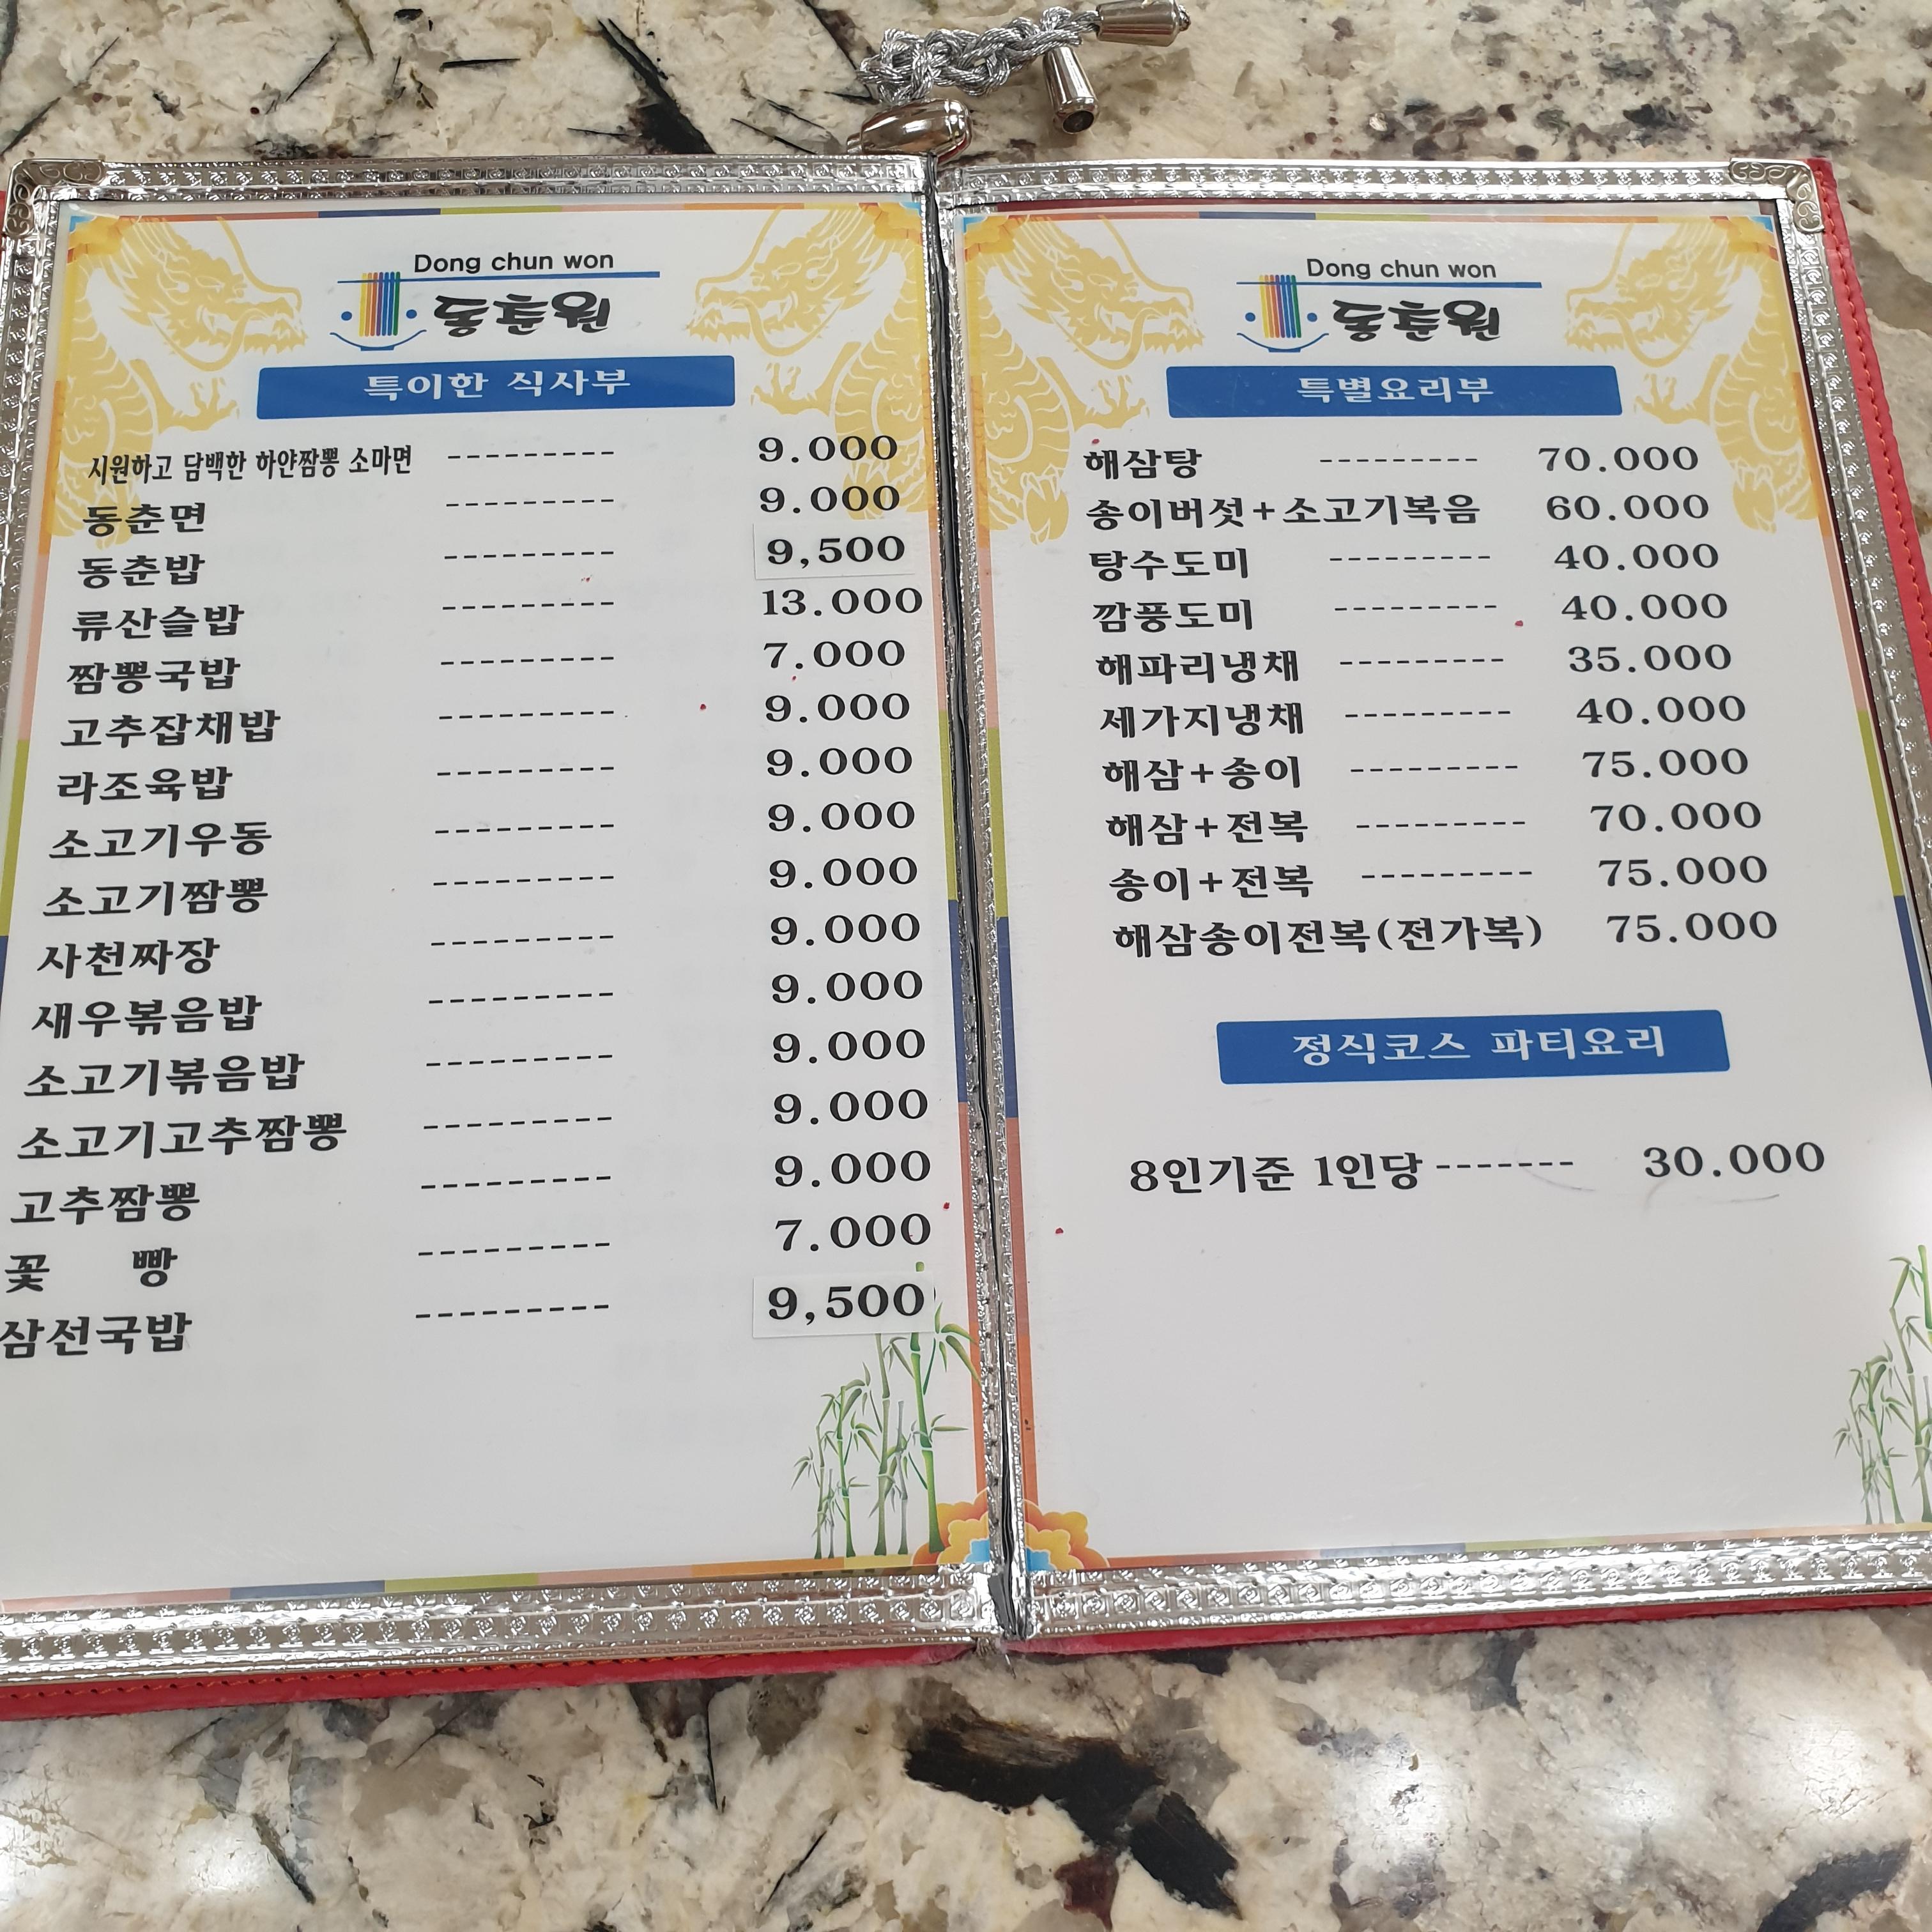 Dong chun won
동춘원
특이한 식사부
시원하고 담백한 하얀짬뽕 소마면 --------- 9.000
동춘면 --------- 9.000
동춘밥 --------- 9,500
류산슬밥 --------- 13.000
짬뽕국밥 --------- 7.000
고추잡채밥 --------- 9.000
라조육밥 --------- 9.000
소고기우동 --------- 9.000
소고기짬뽕 --------- 9.000
사천짜장 --------- 9.000
새우볶음밥 --------- 9.000
소고기볶음밥 --------- 9.000
소고기고추짬뽕 --------- 9.000
고추짬뽕 --------- 9.000
꽃 빵 --------- 7.000
삼선국밥 --------- 9,500
Dong chun won
동춘원
특별요리부
해삼탕 --------- 70.000
송이버섯+소고기볶음 60.000
탕수도미 --------- 40.000
깜풍도미 --------- 40.000
해파리냉채 --------- 35.000
세가지냉채 --------- 40.000
해삼+송이 --------- 75.000
해삼+전복 --------- 70.000
송이+전복 --------- 75.000
해삼송이전복(전가복) 75.000
정식코스 파티요리
8인기준 1인당 ------- 30.000